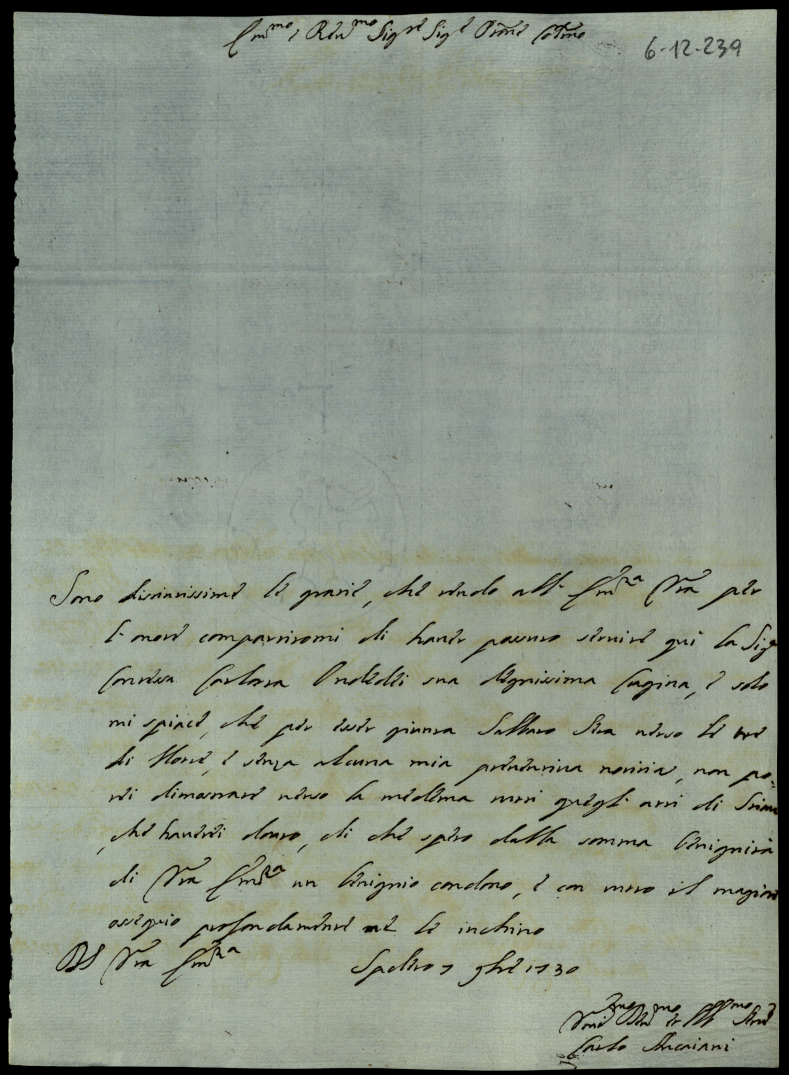 Em.mo, e Rev.mo Sig.re Sig.re P'rone Col'mo
6-12-239
Sono distintissime le grazie, che rendo all' Em.za V'ra per
l' onore compartitomi di haver potuto servire qui la Sig.ra
Contessa Carlotta Ondedei sua degnissima Cugina, e solo
mi spiace, che per esser giunta Sabbato Sera verso le tre
di Notte, e senza alcuna mia preventiva notizia, non po-
tei dimostrare verso la medema tutti quegli atti di Stima
, che haverei dovuto, di che spero dalla somma benignità
di V'ra Em.za un benignio condono, e con tutto il maggior
ossequio profondamente me le inchino
Di V'ra Em.za
Spoleto 7 9bre 1730
Carlo Ancaiani